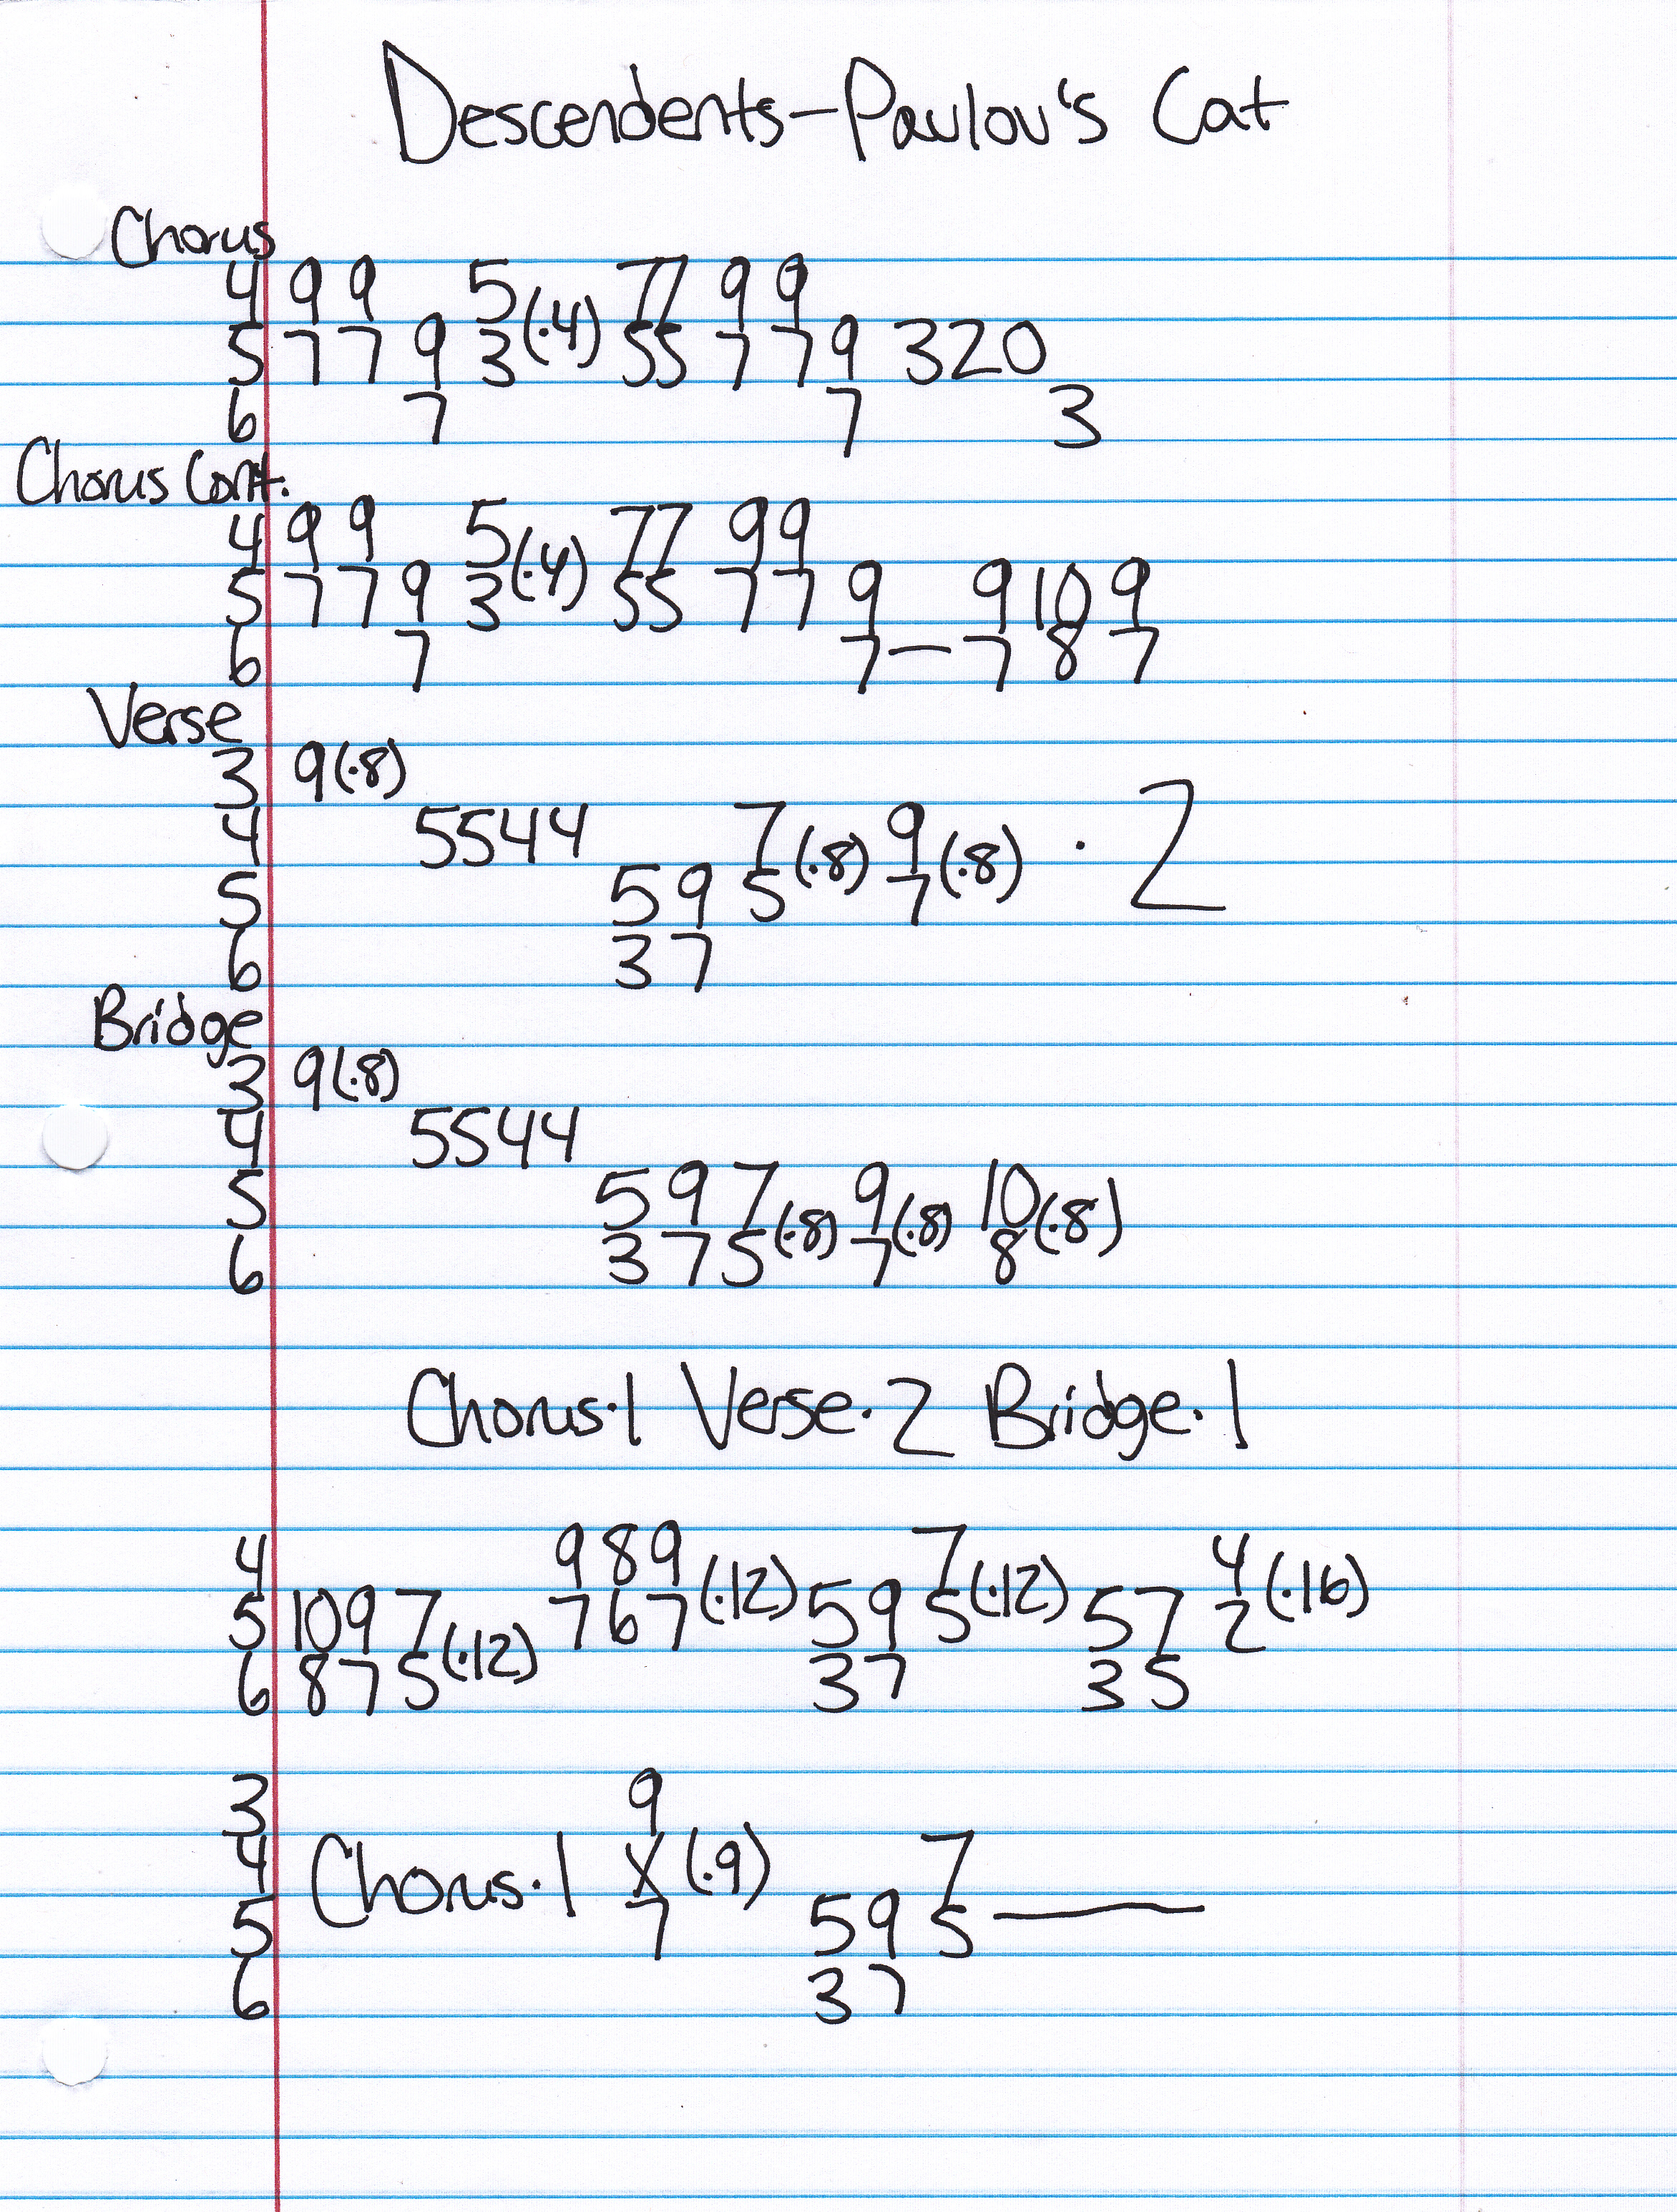 Descendents-Pavlov's Cat
Chorus
4 9 9 5 77 9 9
5 7 7 9 3(·4) 55 7 7 9 320
6 7 7 3
Chorus Cont.
4 9 9 5 77 99
5 7 7 9 3(·4) 55 7 7 9 9 10 9
6 7 7— 7 8 7
Verse
3 9(·8)
4 5544 7 9 · 2
5 59 5(·8) 7(·8)
6 37
Bridge
3 9(·8)
4 5544
5 5 9 7 9 10
6 3 7 5(·8) 7(·8) 8(·8)
Chorus·1 Verse·2 Bridge·1
4 9 8 9 7 4
5 10 9 7 7 6 7(·12) 59 5(·12) 57 2(·16)
6 8 7 5(·12) 37 35
3 9
4 Chorus·1 X(·9) 7
5 7 59 5—
6 37